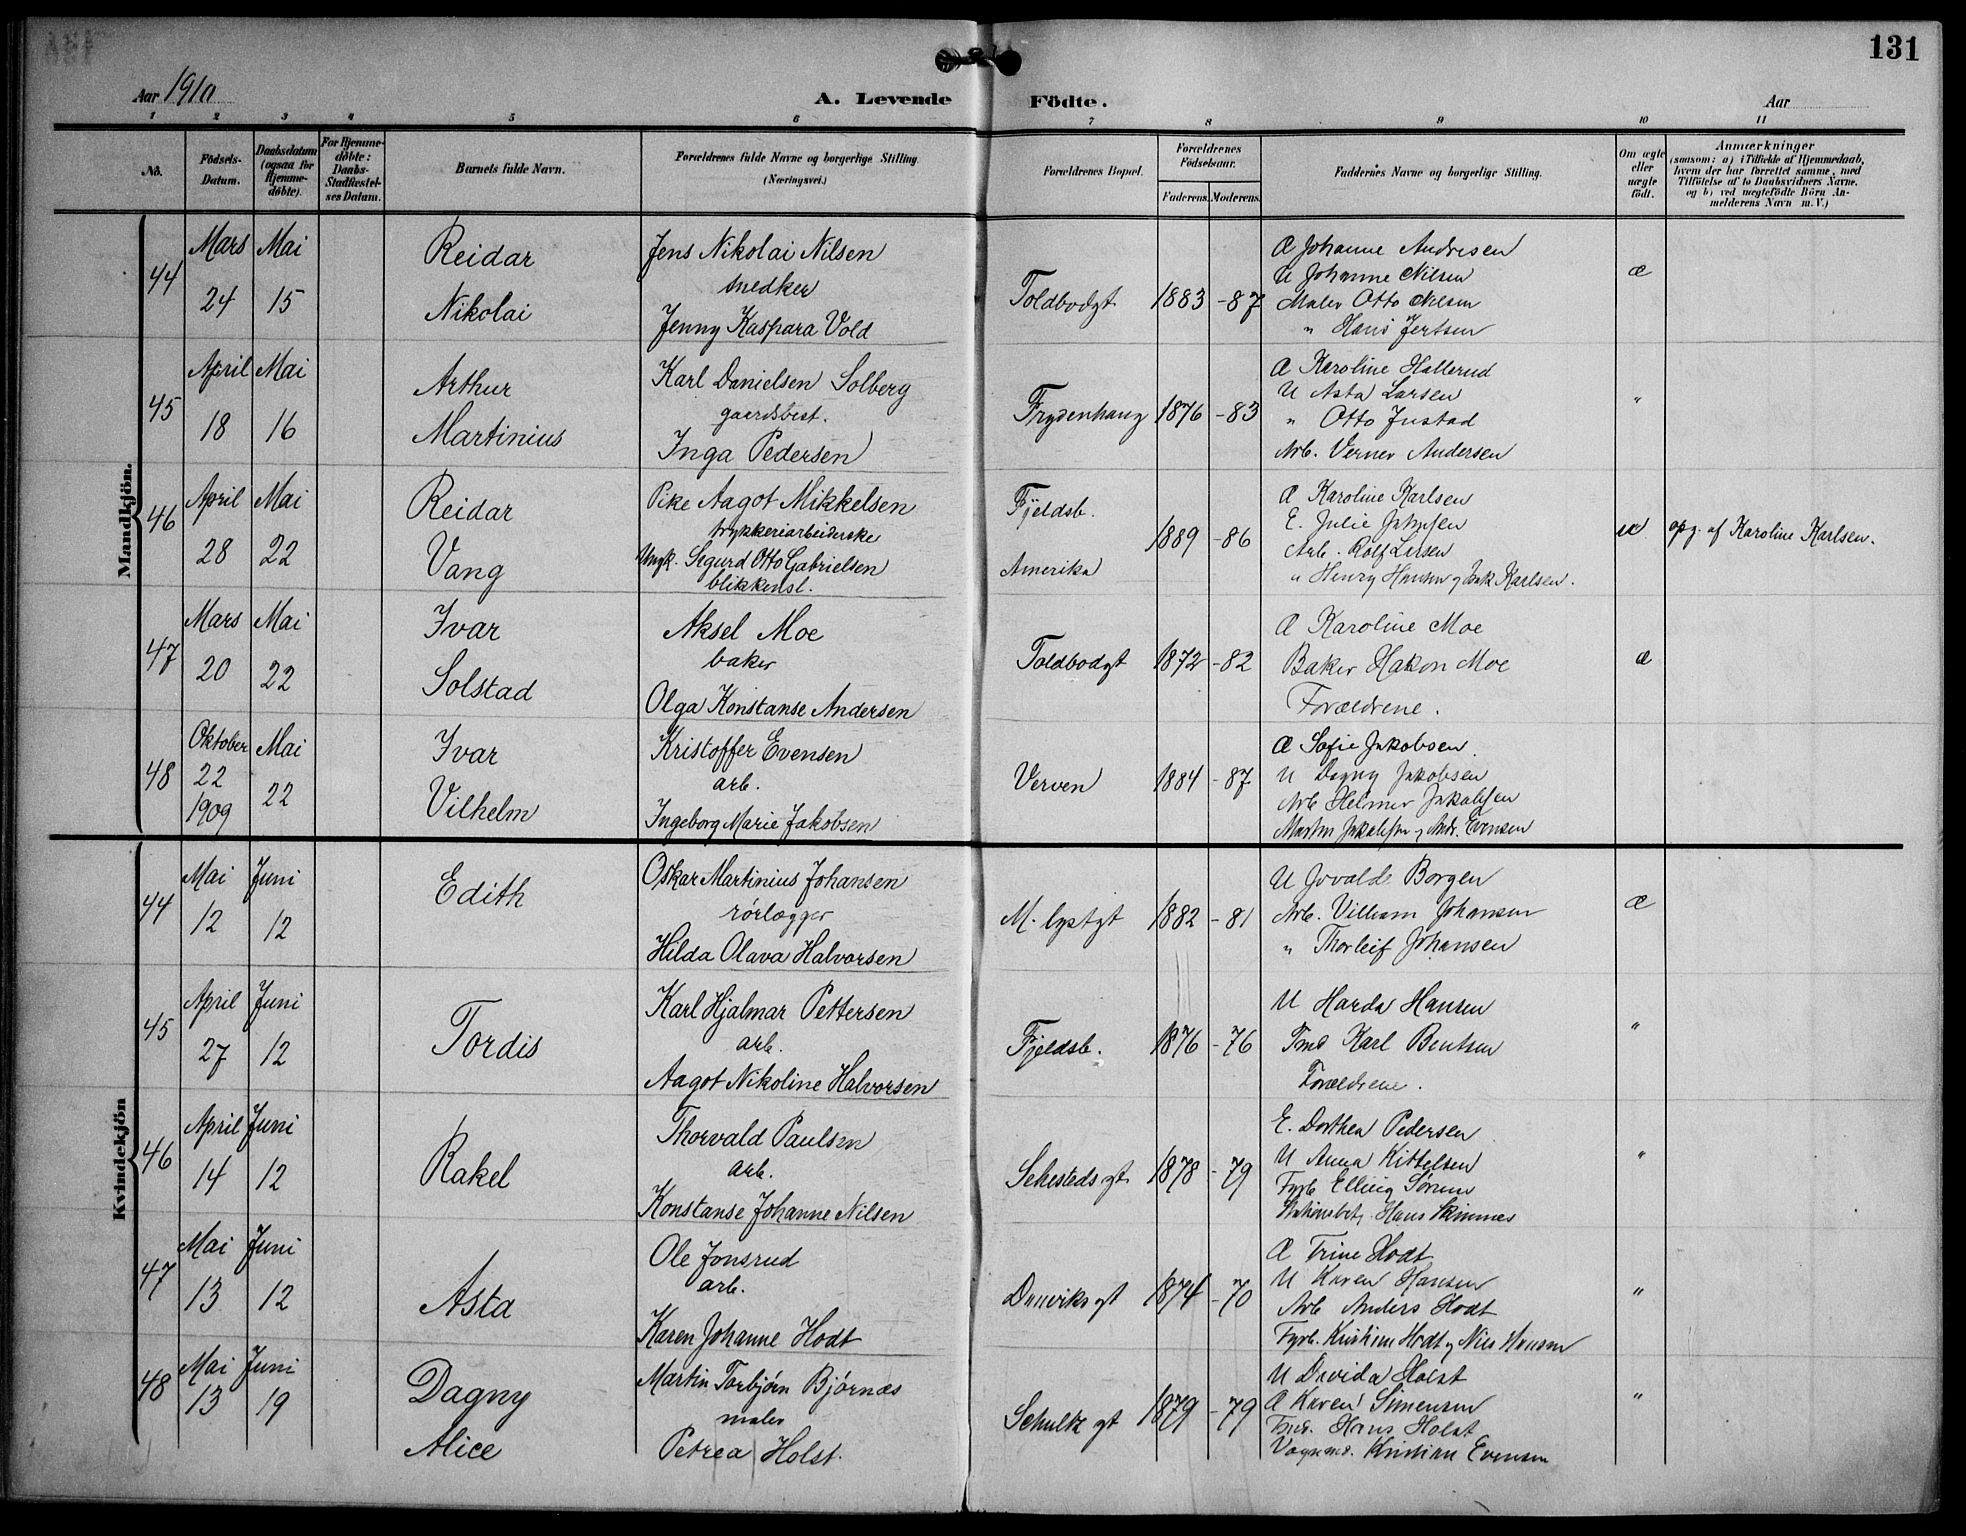 131
Aar 1910
A. Levende Födte.
Aar
1 2 3 4 5 6 7 8 9 10 11
No.
Födsels-Datum.
Daabsdatum (ogsaa for Hjemmedöbte).
For Hjemmedöbte: Daabs-Stadfæstelses Datum.
Barnets fulde Navn.
Forældrenes fulde Navne og borgerlige Stilling. (Næringsvei.)
Forældrenes Bopæl.
Forældrenes Födselsaar.
Faderens. Moderens.
Faddernes Navne og borgerlige Stilling.
Om ægte eller uægte födt.
Anmærkninger
(saasom: a) i Tilfælde af Hjemmedaab, hvem der har forrettet samme, med Tilföielse af to Daabsvidners Navne, og b) ved uægtefödte Börn Anmelderens Navn m. V.)
Mandkjön.
44
Mars 24
Mai 15
Reidar
Nikolai
Jens Nikolai Nilsen
snedker
Jenny Kaspara Vold
Toldbodgt.
1883 - 87
Æ Johanne Andresen
U Johanne Nilsen
Maler Otto Nilsen
" Hans Jertsen
æ
45
April 18
Mai 16
Arthur
Martinius
Karl Danielsen Solberg
gaardsbest.
Inga Pedersen
Frydenhaug
1876 - 83
Æ Karoline Hallerud
U Asta Larsen
" Otto Justad
Arb. Verner Andersen
"
46
April 28
Mai 22
Reidar
Vang
Pike Aagot Mikkelsen
trykkeriarbeiderske
Ungk. Sigurd Otto Gabrielsen
blikkensl.
Fjeldsb.
Amerika
1889 - 86
Æ Karoline Karlsen
E. Julie Jakobsen
Arb. Rolf Larsen
" Henry Hansen og Isak Karlsen.
uæ
opg. af Karoline Karlsen.
47
Mars 20
Mai 22
Ivar
Solstad
Aksel Moe
baker
Olga Konstanse Andersen
Toldbodgt
1872 - 82
Æ Karoline Moe
Baker Hakon Moe
Forældrene.
æ
48
Oktober 22 1909
Mai 22
Ivar
Vilhelm
Kristoffer Evensen
arb.
Ingeborg Marie Jakobsen
Verven
1884 - 87
Æ Sofie Jakobsen.
U Dagny Jakobsen
Arb Helmer Jakobsen
Martin Jakobsen og Andr. Evensen
Kvindekjön
44
Mai 12
Juni 12
Edith
Oskar Martinius Johansen
rörlægger
Hilda Olava Halvorsen
M. lystgt
1882 - 81
U Jovalde Borgen
Arb. Villiam Johansen
" Thorleif Johansen
æ
45
April 27
Juni 12
Tordis
Karl Hjalmar Pettersen
arb.
Aagot Nikoline Halvorsen
Fjeldsb.
1876 - 76
U Harda Hansen
Tmd Karl Bentsen
Forældrene.
"
46
April 14
Juni 12
Rakel
Thorvald Paulsen
arb.
Konstanse Johanne Nilsen
Sehesteds gt
1878 - 79
E. Dorthea Pedersen
U Anna Kittelsen
Fyrb Elling Sørum
Stationsbetj. Hans Skinnes
"
47
Mai 13
Juni 12
Asta
Ole Jonsrud
arb.
Karen Johanne Hodt
Danviks gt
1874 - 70
Æ Trine Hodt
U Karen Hansen
Arb Anders Hodt
Fyrb. Kristian Hodt og Nils Hansen
"
48
Mai 13
Juni 19
Dagny
Alice
Martin Torbjörn Björnæs
maler
Petrea Holst.
Schultz gt
1879 - 79
U Davida Holst
Æ Karen Simensen
Tmd. Hans Holst
Vognmd. Kristian Evensen
"